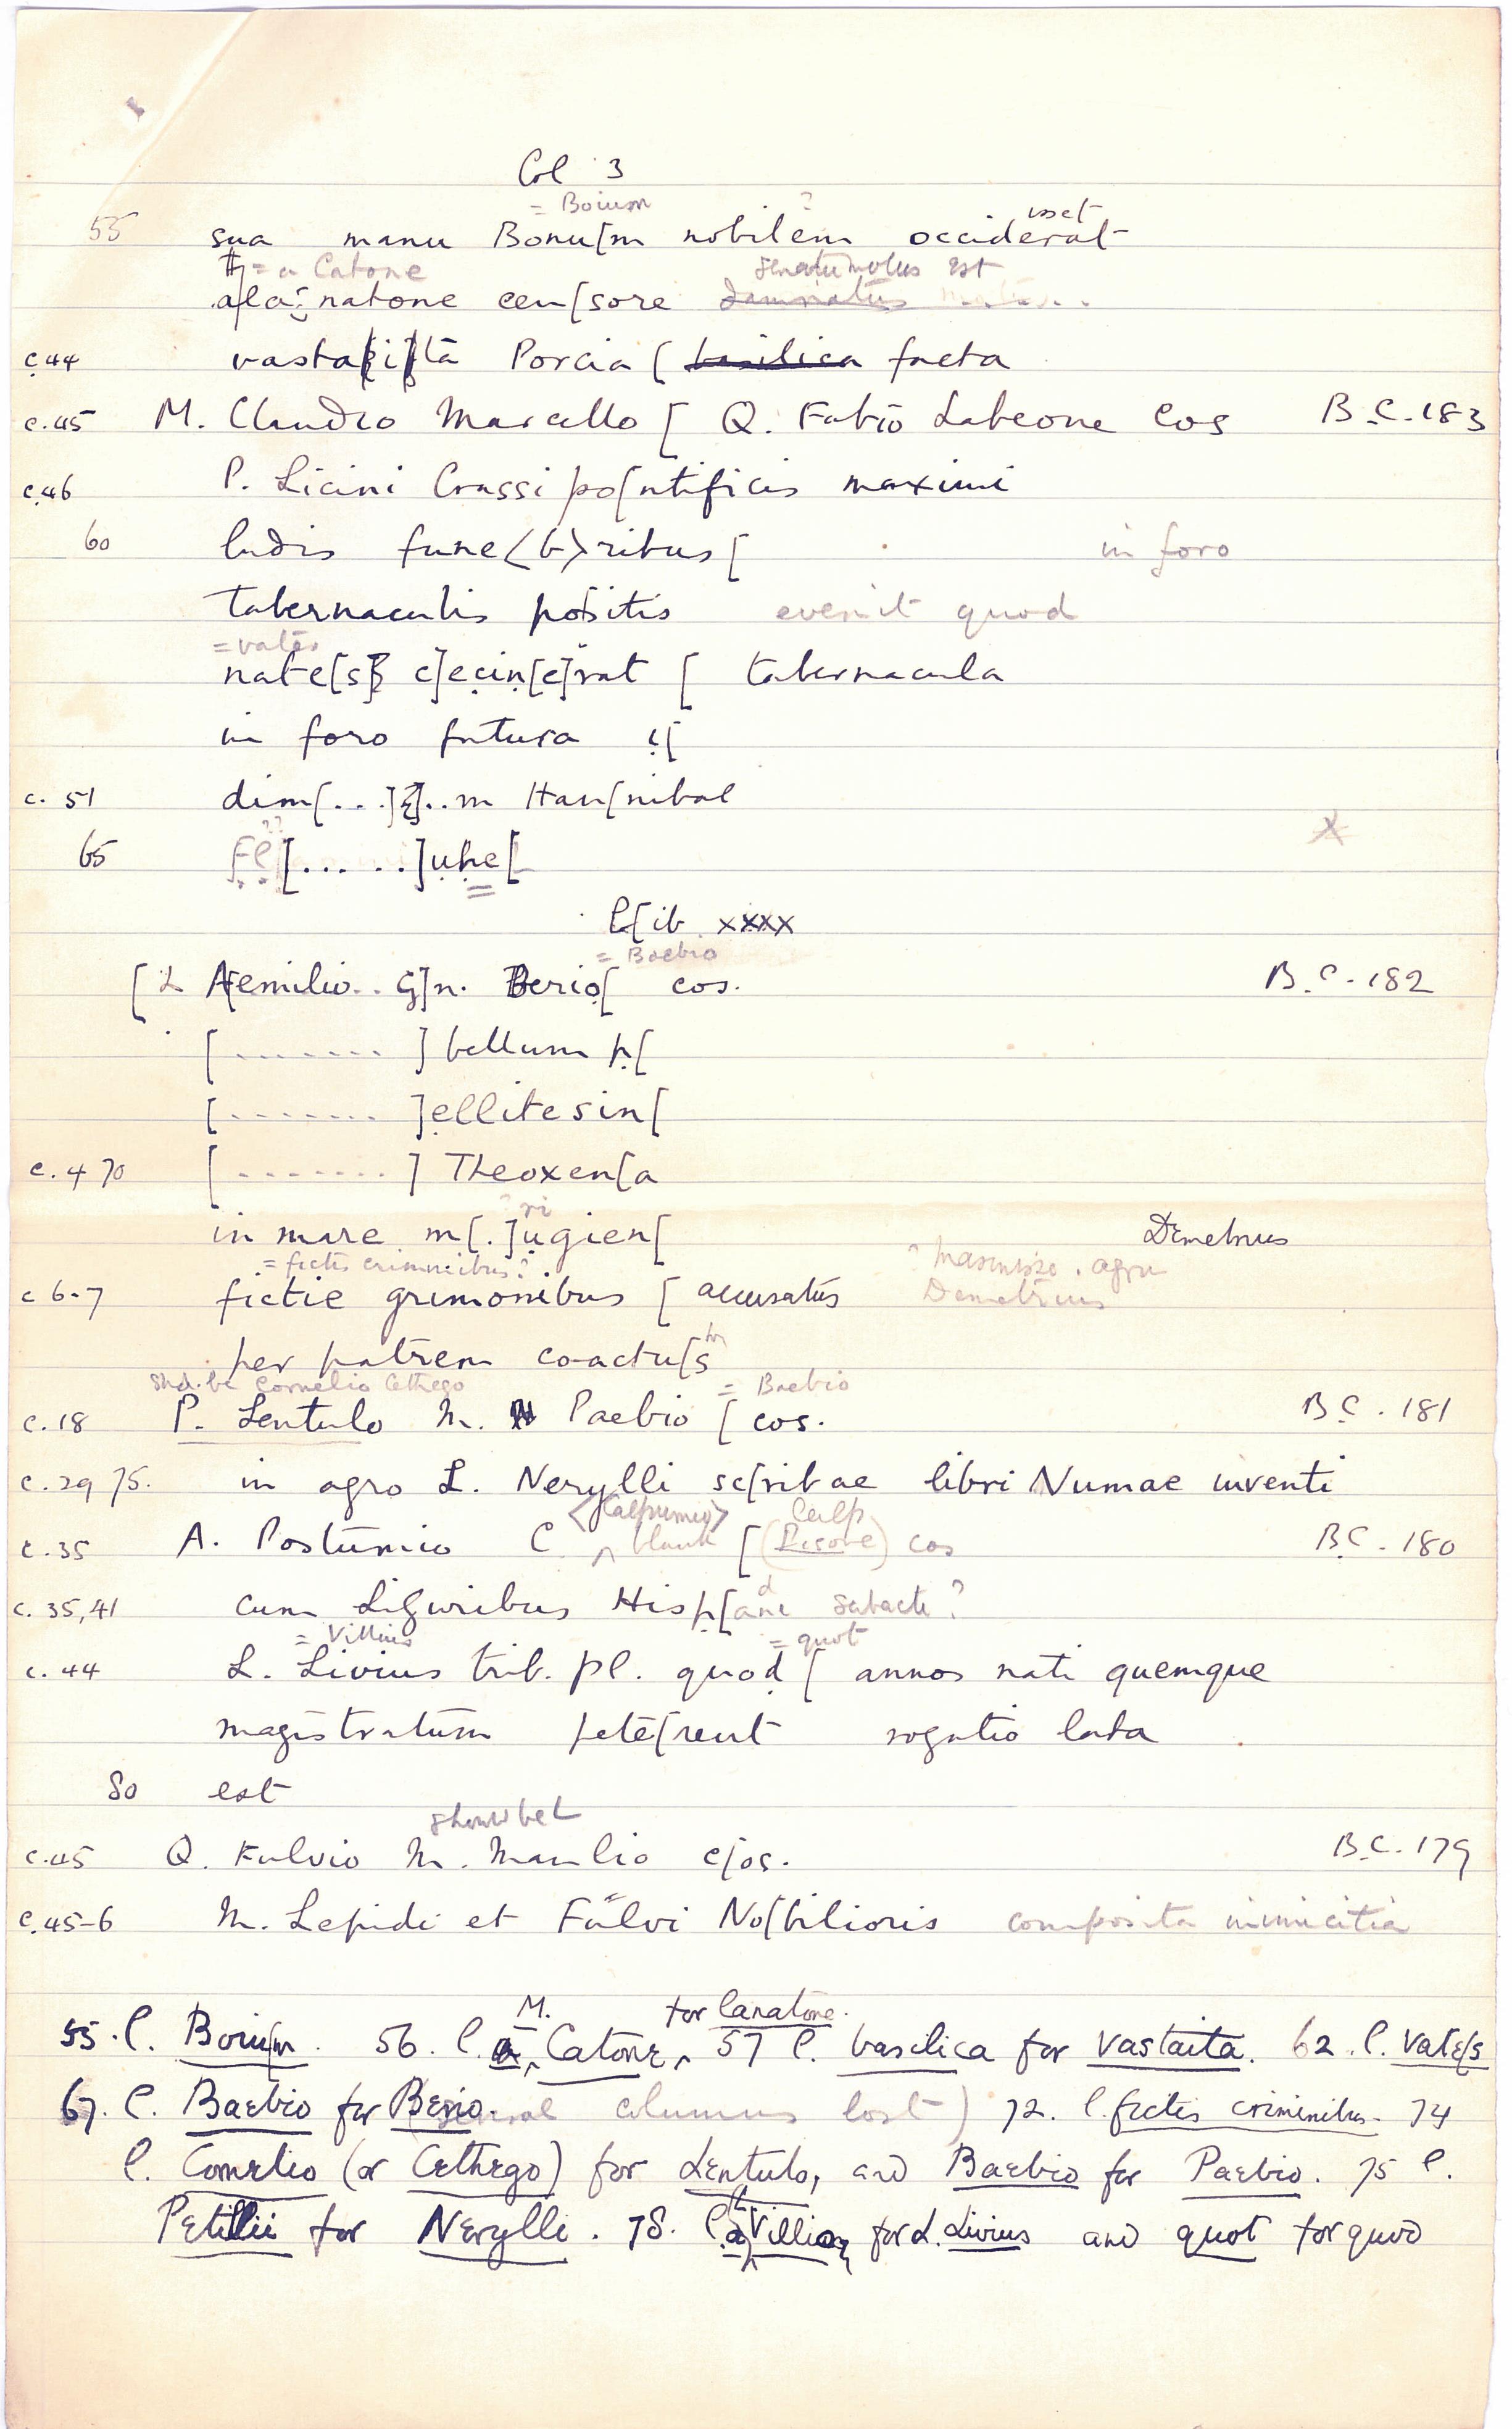 Col 3
= Boium ?
55 sua manu Bonu[m nobilem occiderat isset
= a Catone senatu motus est
a[a]natone cen[sore damnatus
c.44 vastaita Porcia [ basilica facta
c.45 M. Claudio Marcello [ Q. Fabio Labeone Cos B.C. 183
c.46 P. Licini Crassi po[ntificis maximi
60 ludis fune<b>ribus [ in foro
tabernaculis positis evenit quod
= vates
nate[s] c]ecin[e]rat [ tabernacula
in foro futura i[
c. 51 dim[...]..m Han[nibal
65 Fl[.....]uhe[
L[ib xxxx
= Baebio
[L Aemilio.. G]n. Berio[ cos. B.C. 182
[........] bellum p[
[........]ellitesin[
c.4 70 [.......] Theoxen[a
ri
in mare m[.]ugien[ Demetrius
= fictis criminibus? agru
c 6-7 fictie grimonibus [ accusatus Demetrius
per patrem coactu[s
shd. be Cornelio Cethego = Baebio
c.18 P. Lentulo M. Paebio [ cos. B.C. 181
c.29 75. in agro L. Nerylli sc[ribae libri Numae inventi
<Calpurnio> Calp
c.35 A. Postumio C. blank [(Pisone) cos B.C. 180
c. 35,41 cum Liguribus Hisp[ani subacti?
= Villius = quot
c. 44 L. Livius trib. pl. quod [ annos nati quemque
magistratum pete[rent rogatio lata
80 est
should be L
c.45 Q. Fulvio M. Manlio c]os. B.C. 179
c.45-6 M. Lepidi et Fulvi No[bilioris composita inimicitia
M. for Canatone.
55. l. Boiu[m. 56. l. a Catone, 57 l. basilica for vastaita. 62. l. vate[s
67. l. Baebio for Berio. several columns lost) 72. l. fictis criminibus. 74
l. Cornelio (or Cethego) for Lentulo, and Baebio for Paebio. 75 l.
Petillii for Nerylli. 78. l. Villius for L. Livius and quot for quod